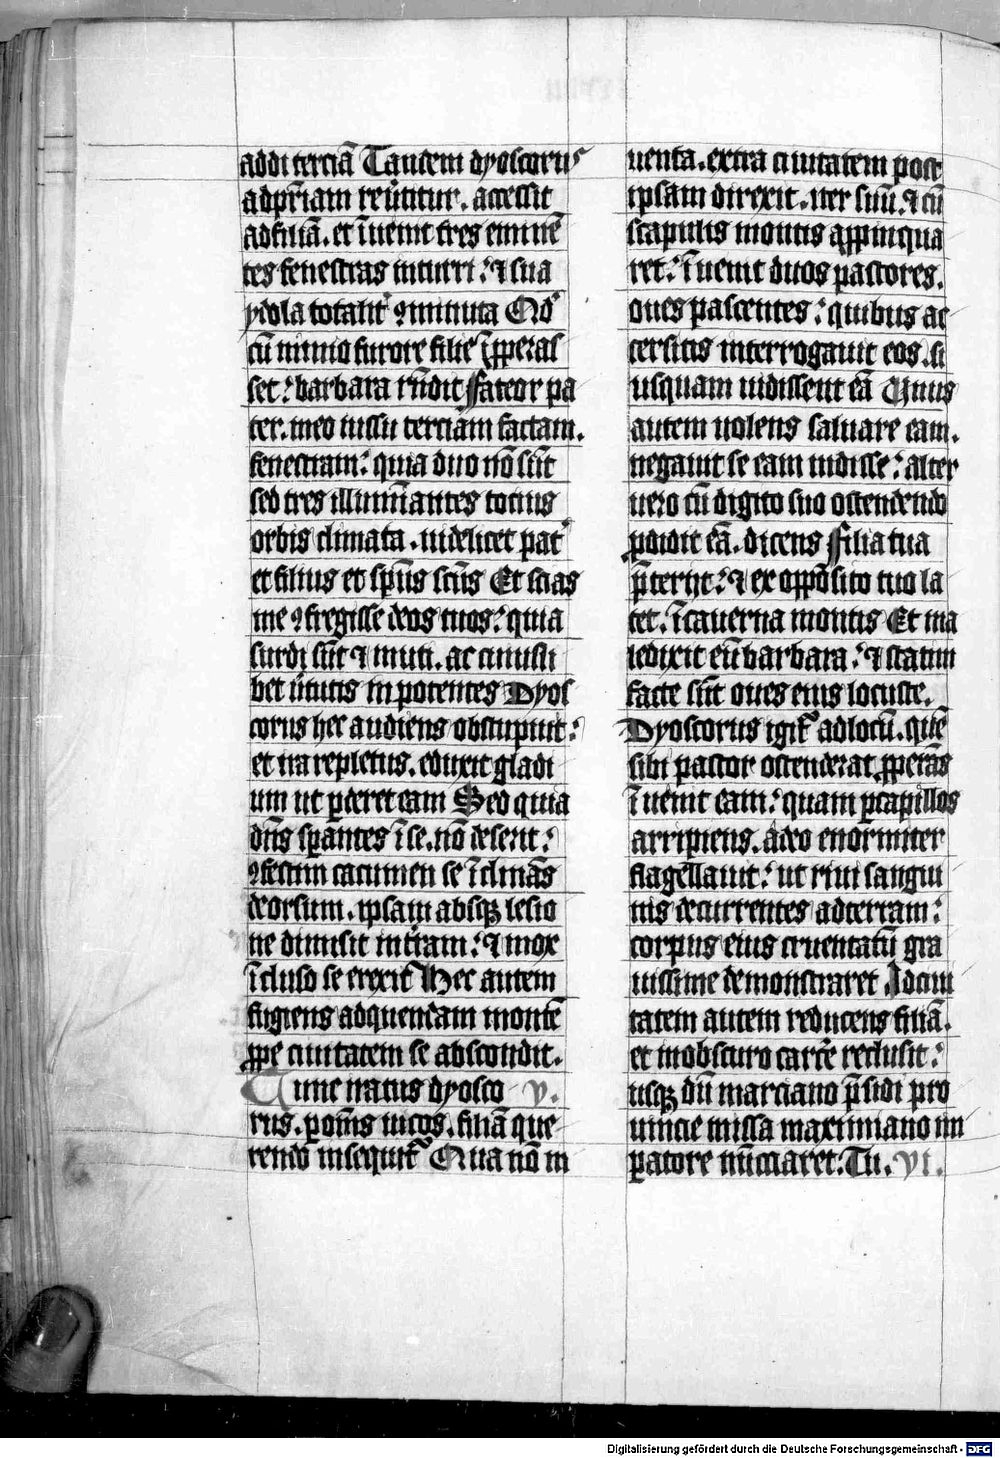 addi terciā Tandem dyoscorus
ad pͥriam reu̾titur. accessit
ad filiā. et īuenit tres eminē
tes fenestras in turri: ⁊ sua
ydola totalit̾ ꝯminuta Cū
cū nimio furore filie īꝓperas
set: barbara rn̄dit Fateor pa
ter. meo iussu terciam factam.
fenestram: quia duo nō sūt
sed tres illumīantes totius
orbis climata. uidelicet pat̾
et filius et sp̄us sc̄us Et scias
me ꝯfregisse deos tuos: quia
surdi sūt ⁊ muti. ac cuiusli
bet u̾tutis inpotentes Dyos
corus hec audiens obstupuit:
et ira repletus. eduxit gladi
um ut ꝑderet eam Sed quia
dn̄s sp̄antes ī se. nō deserit:
ꝯfestim cacumen se īclinās
deorsum. ipsam absqꝫ lesio
ne dimisit intram: ⁊ mox
īcluso se erexit Hec autem
fugiens ad quendam montē
ꝓpe ciuitatem se abscondit.
Tunc iratus dyosco v.
rus. ꝑ om̄s uicos. filiā que-
rendo insequit̾ Qua nō in
uenta. extra ciuitatem post
ipsam direxit. iter suū. ⁊ cū
scapulis montis aꝓpinqua
ret: īuenit duos pastores.
oues pascentes: quibus ac
cersitis interrogauit eos. si
usquam uidissent eā Unus
autem uolens saluare eam.
negauit se eam uidisse: alter
uero cū digito suo ostendendo
ꝓdidit eā. dicens Filia tua
p̄terijt: ⁊ ex opposito tuo la
tet. ī cauerna montis Et ma
ledixit eū barbara: ⁊ statim
facte sūt oues eius locuste.
Dyoscorus igit̾ ad locū. quē
sibi pastor ostenderat ꝓperās
īuenit eam: quam ꝑ capillos
arripiens. adeo enormiter
flagellauit: ut riui sangui
nis decurrentes ad terram:
corpus eius cruentatū gra
uissime demonstraret Ad ciui
tatem autem reducens filiā.
et in obscuro carc̾e reclusit:
usqꝫ dū marciano p̄sidi pro
uincie missa maximiano im
ꝑatore nūciaret: Tu. vi.
Digitalisierung gefördert durch die Deutsche Forschungsgemeinschaft - DFG